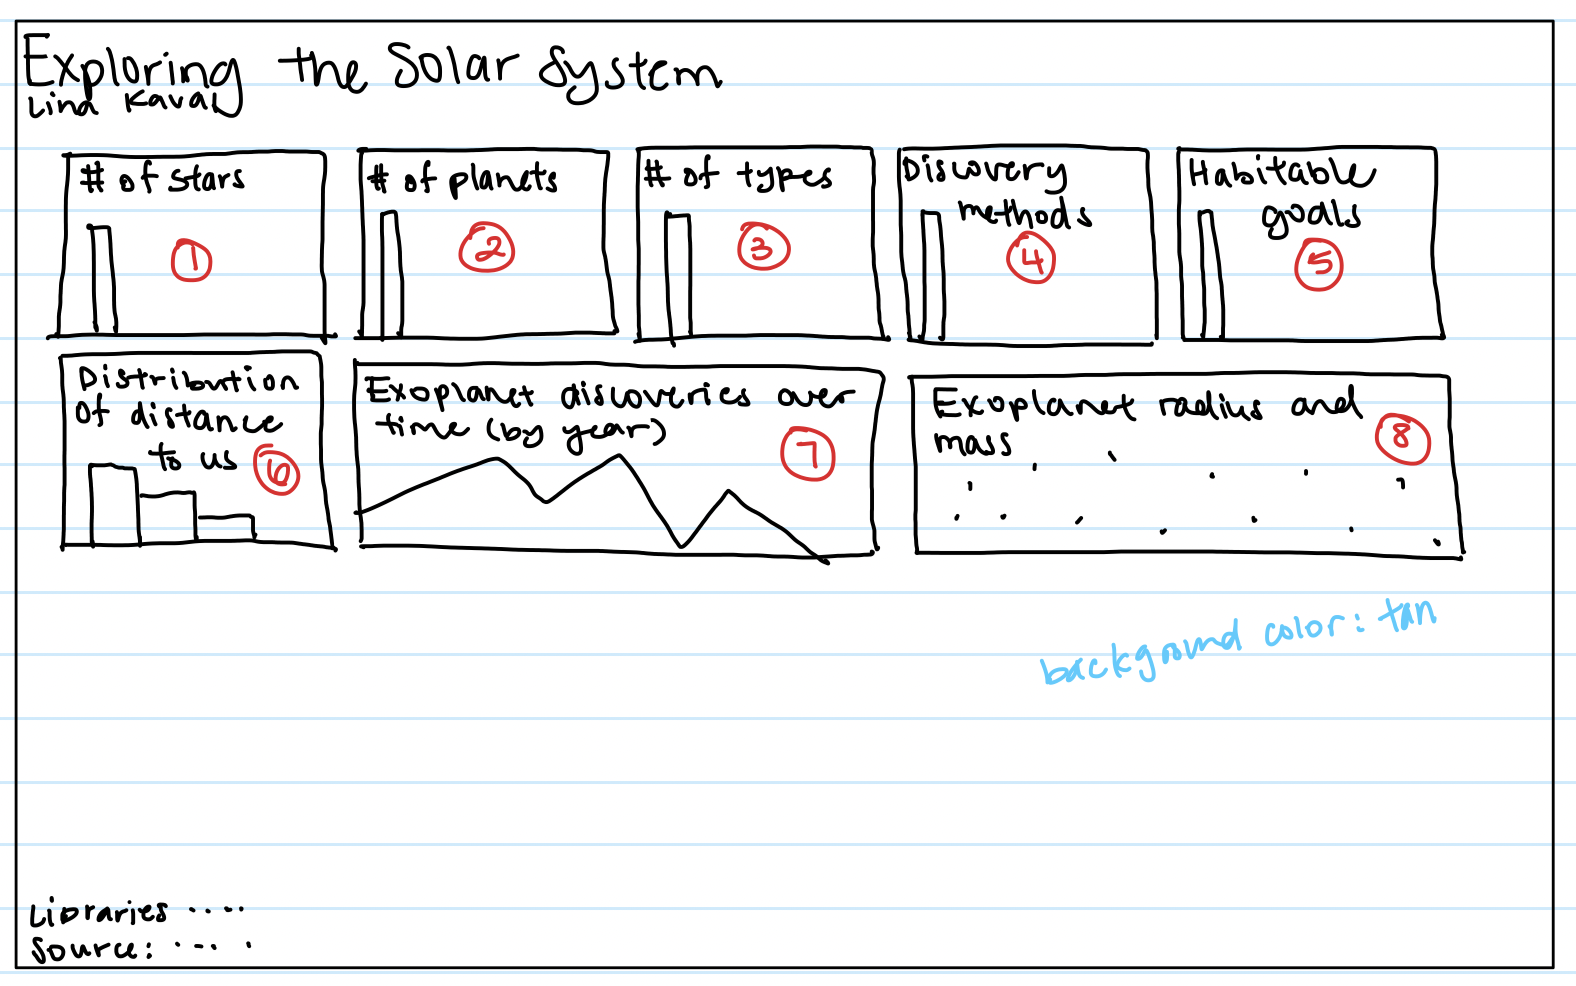 Exploring the Solar System
Lina Kaval
# of stars
1
# of planets
2
# of types
3
Discovery
methods
4
Habitable
goals
5
Distribution
of distance
to us
6
Exoplanet discoveries over
time (by year)
7
Exoplanet radius and
mass
8
background color: tan
Libraries ....
Source: ....